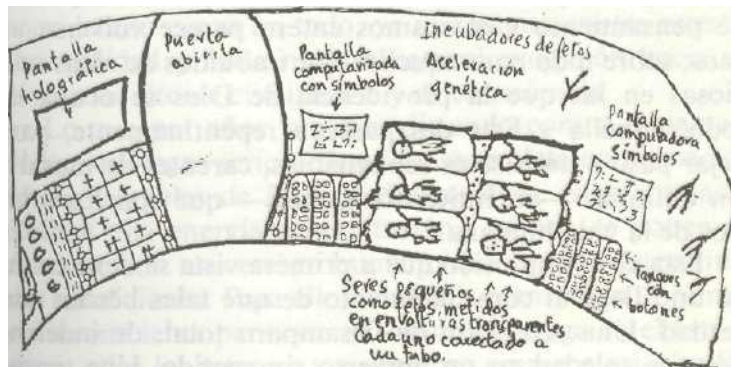 Pantalla
holográfica
Puerta
abierta
Pantalla
computarizada
con símbolos
Incubadores de fetos
Aceleración
genética
Pantalla
computadora
Símbolos
Tablero
con
botones
Seres pequeños
como fetos, metidos
en envolturas transparentes
cada uno conectado a
un tubo.